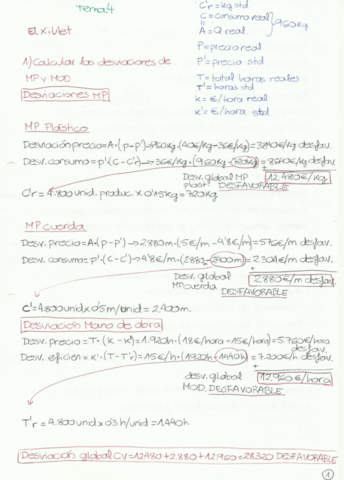 Tema 4
C'r = kg std
C = consumo real
=
A = Q real.
} 960 kg
El Xiulet
P = precio real
P' = precio std
1) Calcular las desviaciones de
MP y MOD
T = total horas reales
T' = horas std
K = €/hora real
K' = €/hora std
Desviaciones MP
MP Plástico
Desviación precio = A · (p - p') → 960 kg · (40€/kg - 36€/kg) = 3840€/kg desfav.
Desv. consumo = p' · (C - C') → 36€/kg · (960kg - 720kg) = 8640€/kg desfav.
+
Desv. global MP
plást. DESFAVORABLE
12.480€/kg
C'r = 4.800 unid. produc. x 0'15kg = 720kg
MP cuerda
Desv. precio = A · (p - p') → 2880m · (5€/m - 4'8€/m) = 576€/m desfav.
Desv. consumo = p' · (C - C') → 4'8€/m · (2880 - 2400m) = 2.304€/m desfav.
+
Desv. global
MP cuerda
2.880€/m desfav.
DESFAVORABLE
C' = 4.800 unid x 0'5m/unid = 2.400m.
Desviación Mano de obra
Desv. precio = T · (K - K') = 1.920h · (18€/hora - 15€/hora) = 5.760€/hora
desfav.
Desv. eficien = K' · (T - T') = 15€/h · (1920h - 1440h) = 7.200€/h desfav.
+
desv. global
MOD, DESFAVORABLE
12.960€/hora
T'r = 4.800 und x 0'3 h/unid = 1.440h.
Desviación global CV = 12480 + 2.880 + 12960 = 28320 DESFAVORABLE
1